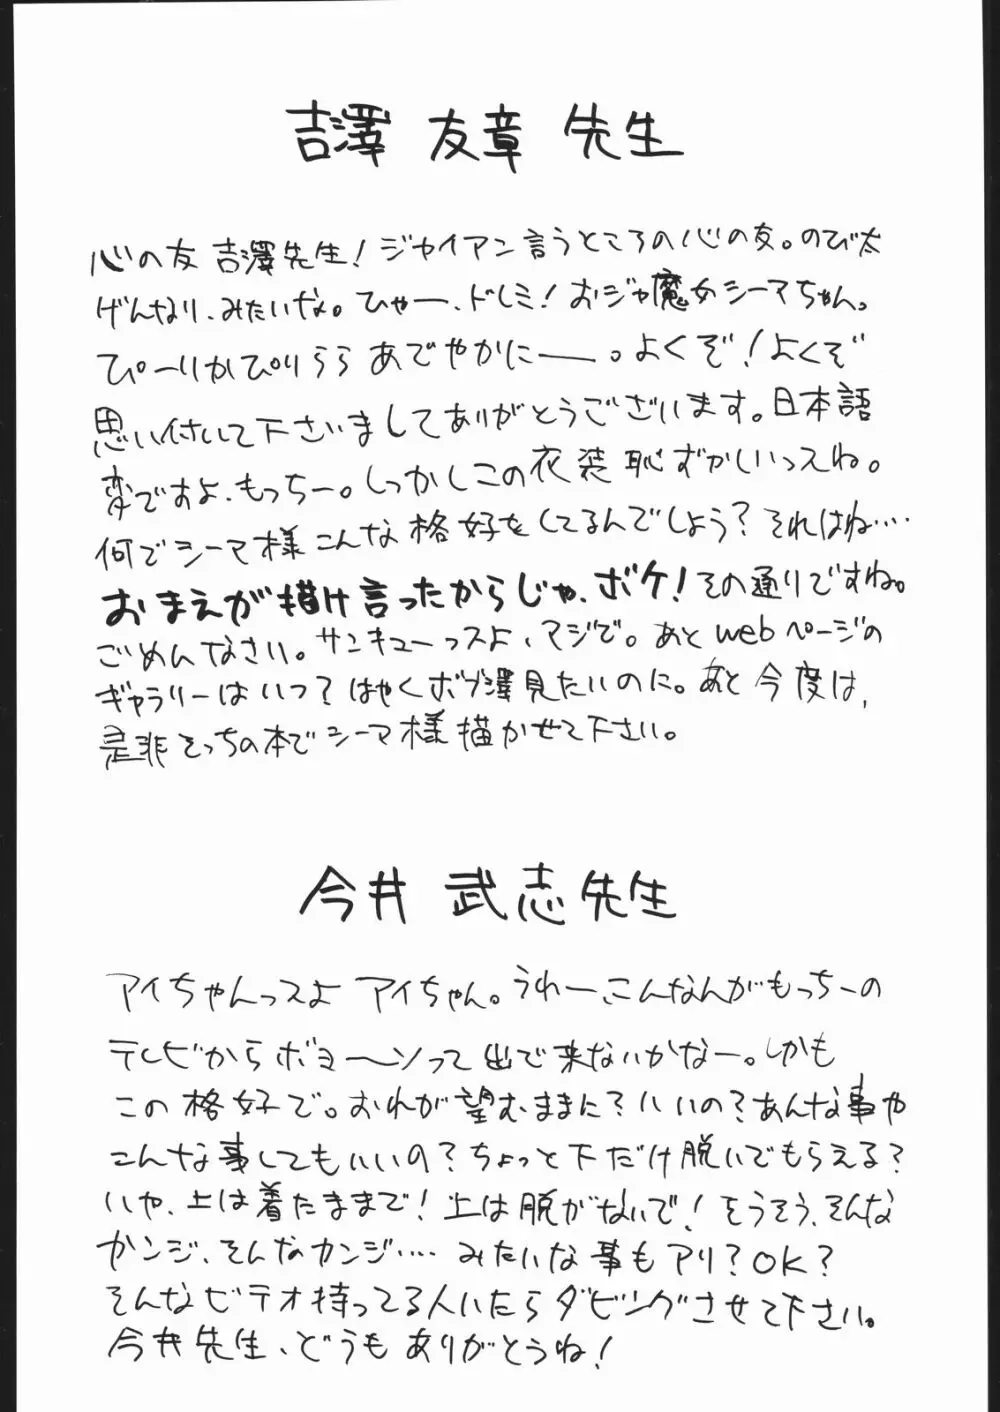 吉澤 友章 先生
心の友 吉澤先生！ジャイアン言うところの心の友。のび太
げんなり、みたいな。ひゃー、ドレミ！おジャ魔女シーマちゃん。
ぴーりかぴりらら あでやかにー。よくぞ！よくぞ
思い付いて下さいましてありがとうございます。日本語
変ですよ、もっちー。しっかしこの衣装恥ずかしいっスね。
何でシーマ様こんな格好をしてるんでしょう？それはね‥‥
おまえが描け言ったからじゃ、ボケ！その通りですね。
ごめんなさい。サンキューっスよ、マジで。あとwebページの
ギャラリーはいつ？はやくボブ澤見たいのに。あと今度は、
是非そっちの本でシーマ様描かせて下さい。
今井 武志先生
アイちゃんっスよ アイちゃん。うわー、こんなんがもっちーの
テレビからボヨ〜ンって出て来ないかなー。しかも
この格好で。おれが望むままに？いいの？あんな事や
こんな事してもいいの？ちょっと下だけ脱いでもらえる？
いや、上は着たままで！上は脱がないで！そうそう、そんな
カンジ、そんなカンジ‥‥みたいな事もアリ？OK？
そんなビデオ持ってる人いたらダビングさせて下さい。
今井先生、どうもありがとうね！